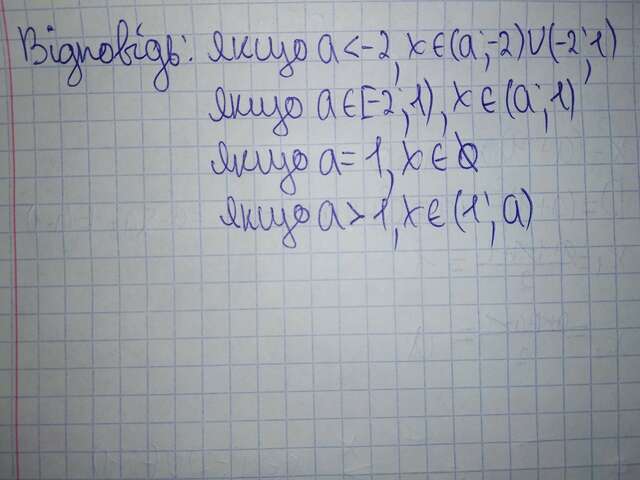 Відповідь: якщо a < -2, x ∈ (a; -2) ∪ (-2; 1)
якщо a ∈ [-2; 1), x ∈ (a; 1)
якщо a = 1, x ∈ ∅
якщо a > 1, x ∈ (1; a)